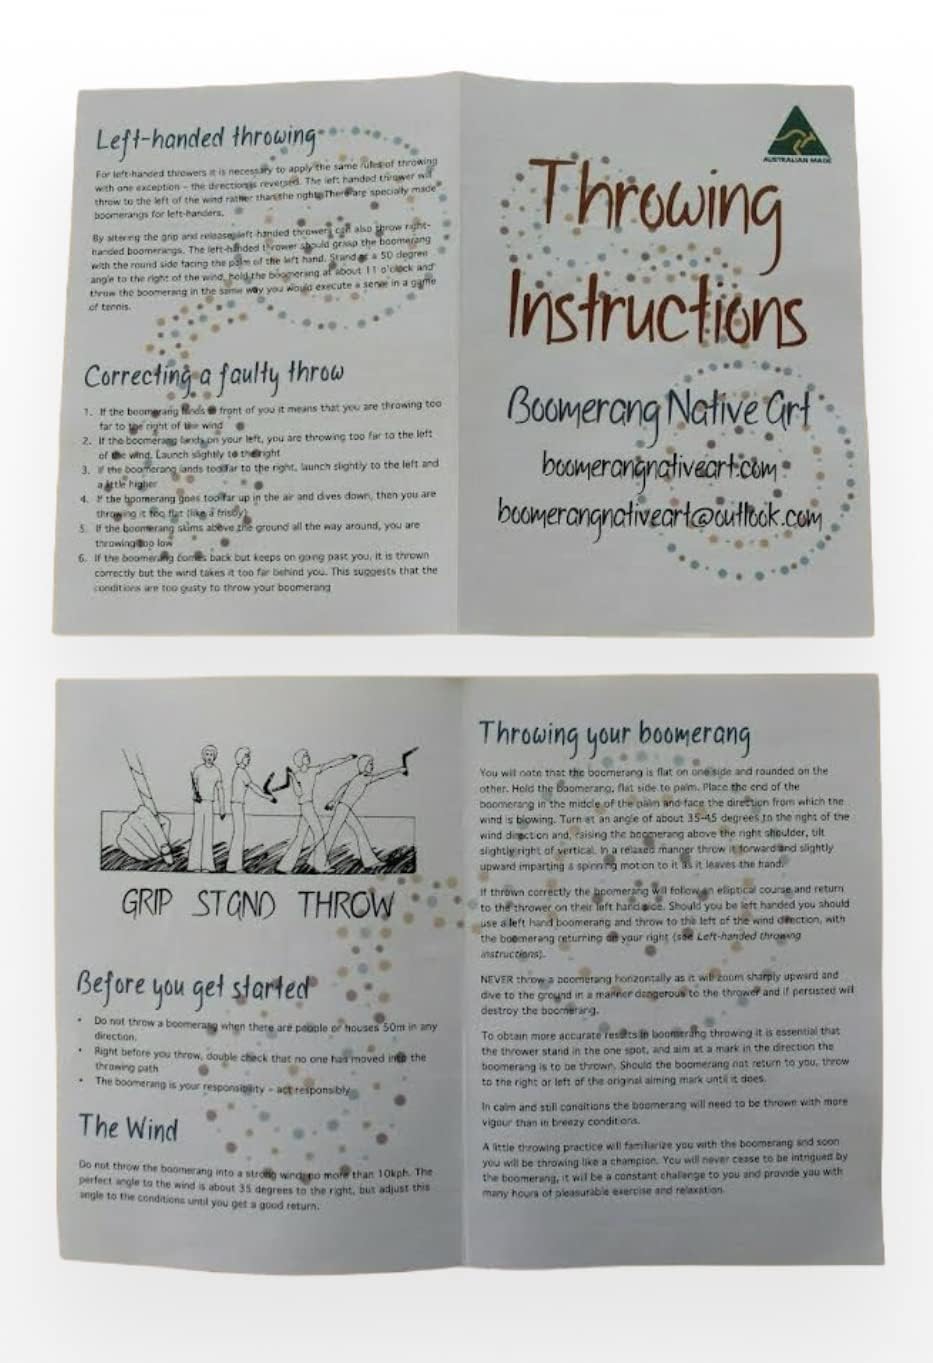 Left-handed throwing
For left-handed throwers it is necessary to apply the same rules of throwing
with one exception - the direction is reversed. The left handed thrower will
throw to the left of the wind rather than the right. There are specially made
boomerangs for left-handers.
By altering the grip and release, left-handed throwers can also throw right-
handed boomerangs. The left-handed thrower should grasp the boomerang
with the round side facing the palm of the left hand. Stand at a 50 degree
angle to the right of the wind, hold the boomerang at about 11 o'clock and
throw the boomerang in the same way you would execute a serve in a game
of tennis.
Correcting a faulty throw
1. If the boomerang lands in front of you it means that you are throwing too
far to the right of the wind
2. If the boomerang lands on your left, you are throwing too far to the left
of the wind. Launch slightly to the right
3. If the boomerang lands too far to the right, launch slightly to the left and
a little higher
4. If the boomerang goes too far up in the air and dives down, then you are
throwing it too flat (like a frisby)
5. If the boomerang skims above the ground all the way around, you are
throwing too low
6. If the boomerang comes back but keeps on going past you, it is thrown
correctly but the wind takes it too far behind you. This suggests that the
conditions are too gusty to throw your boomerang
AUSTRALIAN MADE
Throwing
Instructions
Boomerang Native Art
boomerangnativeart.com
boomerangnativeart@outlook.com
GRIP STAND THROW
Before you get started
• Do not throw a boomerang when there are people or houses 50m in any
direction.
• Right before you throw, double check that no one has moved into the
throwing path
• The boomerang is your responsibility - act responsibly
The Wind
Do not throw the boomerang into a strong wind; no more than 10kph. The
perfect angle to the wind is about 35 degrees to the right, but adjust this
angle to the conditions until you get a good return.
Throwing your boomerang
You will note that the boomerang is flat on one side and rounded on the
other. Hold the boomerang, flat side to palm. Place the end of the
boomerang in the middle of the palm and face the direction from which the
wind is blowing. Turn at an angle of about 35-45 degrees to the right of the
wind direction and, raising the boomerang above the right shoulder, tilt
slightly right of vertical. In a relaxed manner throw it forward and slightly
upward imparting a spinning motion to it as it leaves the hand.
If thrown correctly the boomerang will follow an elliptical course and return
to the thrower on their left hand side. Should you be left handed you should
use a left hand boomerang and throw to the left of the wind direction, with
the boomerang returning on your right (see Left-handed throwing
instructions).
NEVER throw a boomerang horizontally as it will zoom sharply upward and
dive to the ground in a manner dangerous to the thrower and if persisted will
destroy the boomerang.
To obtain more accurate results in boomerang throwing it is essential that
the thrower stand in the one spot, and aim at a mark in the direction the
boomerang is to be thrown. Should the boomerang not return to you, throw
to the right or left of the original aiming mark until it does.
In calm and still conditions the boomerang will need to be thrown with more
vigour than in breezy conditions.
A little throwing practice will familiarize you with the boomerang and soon
you will be throwing like a champion. You will never cease to be intrigued by
the boomerang, it will be a constant challenge to you and provide you with
many hours of pleasurable exercise and relaxation.